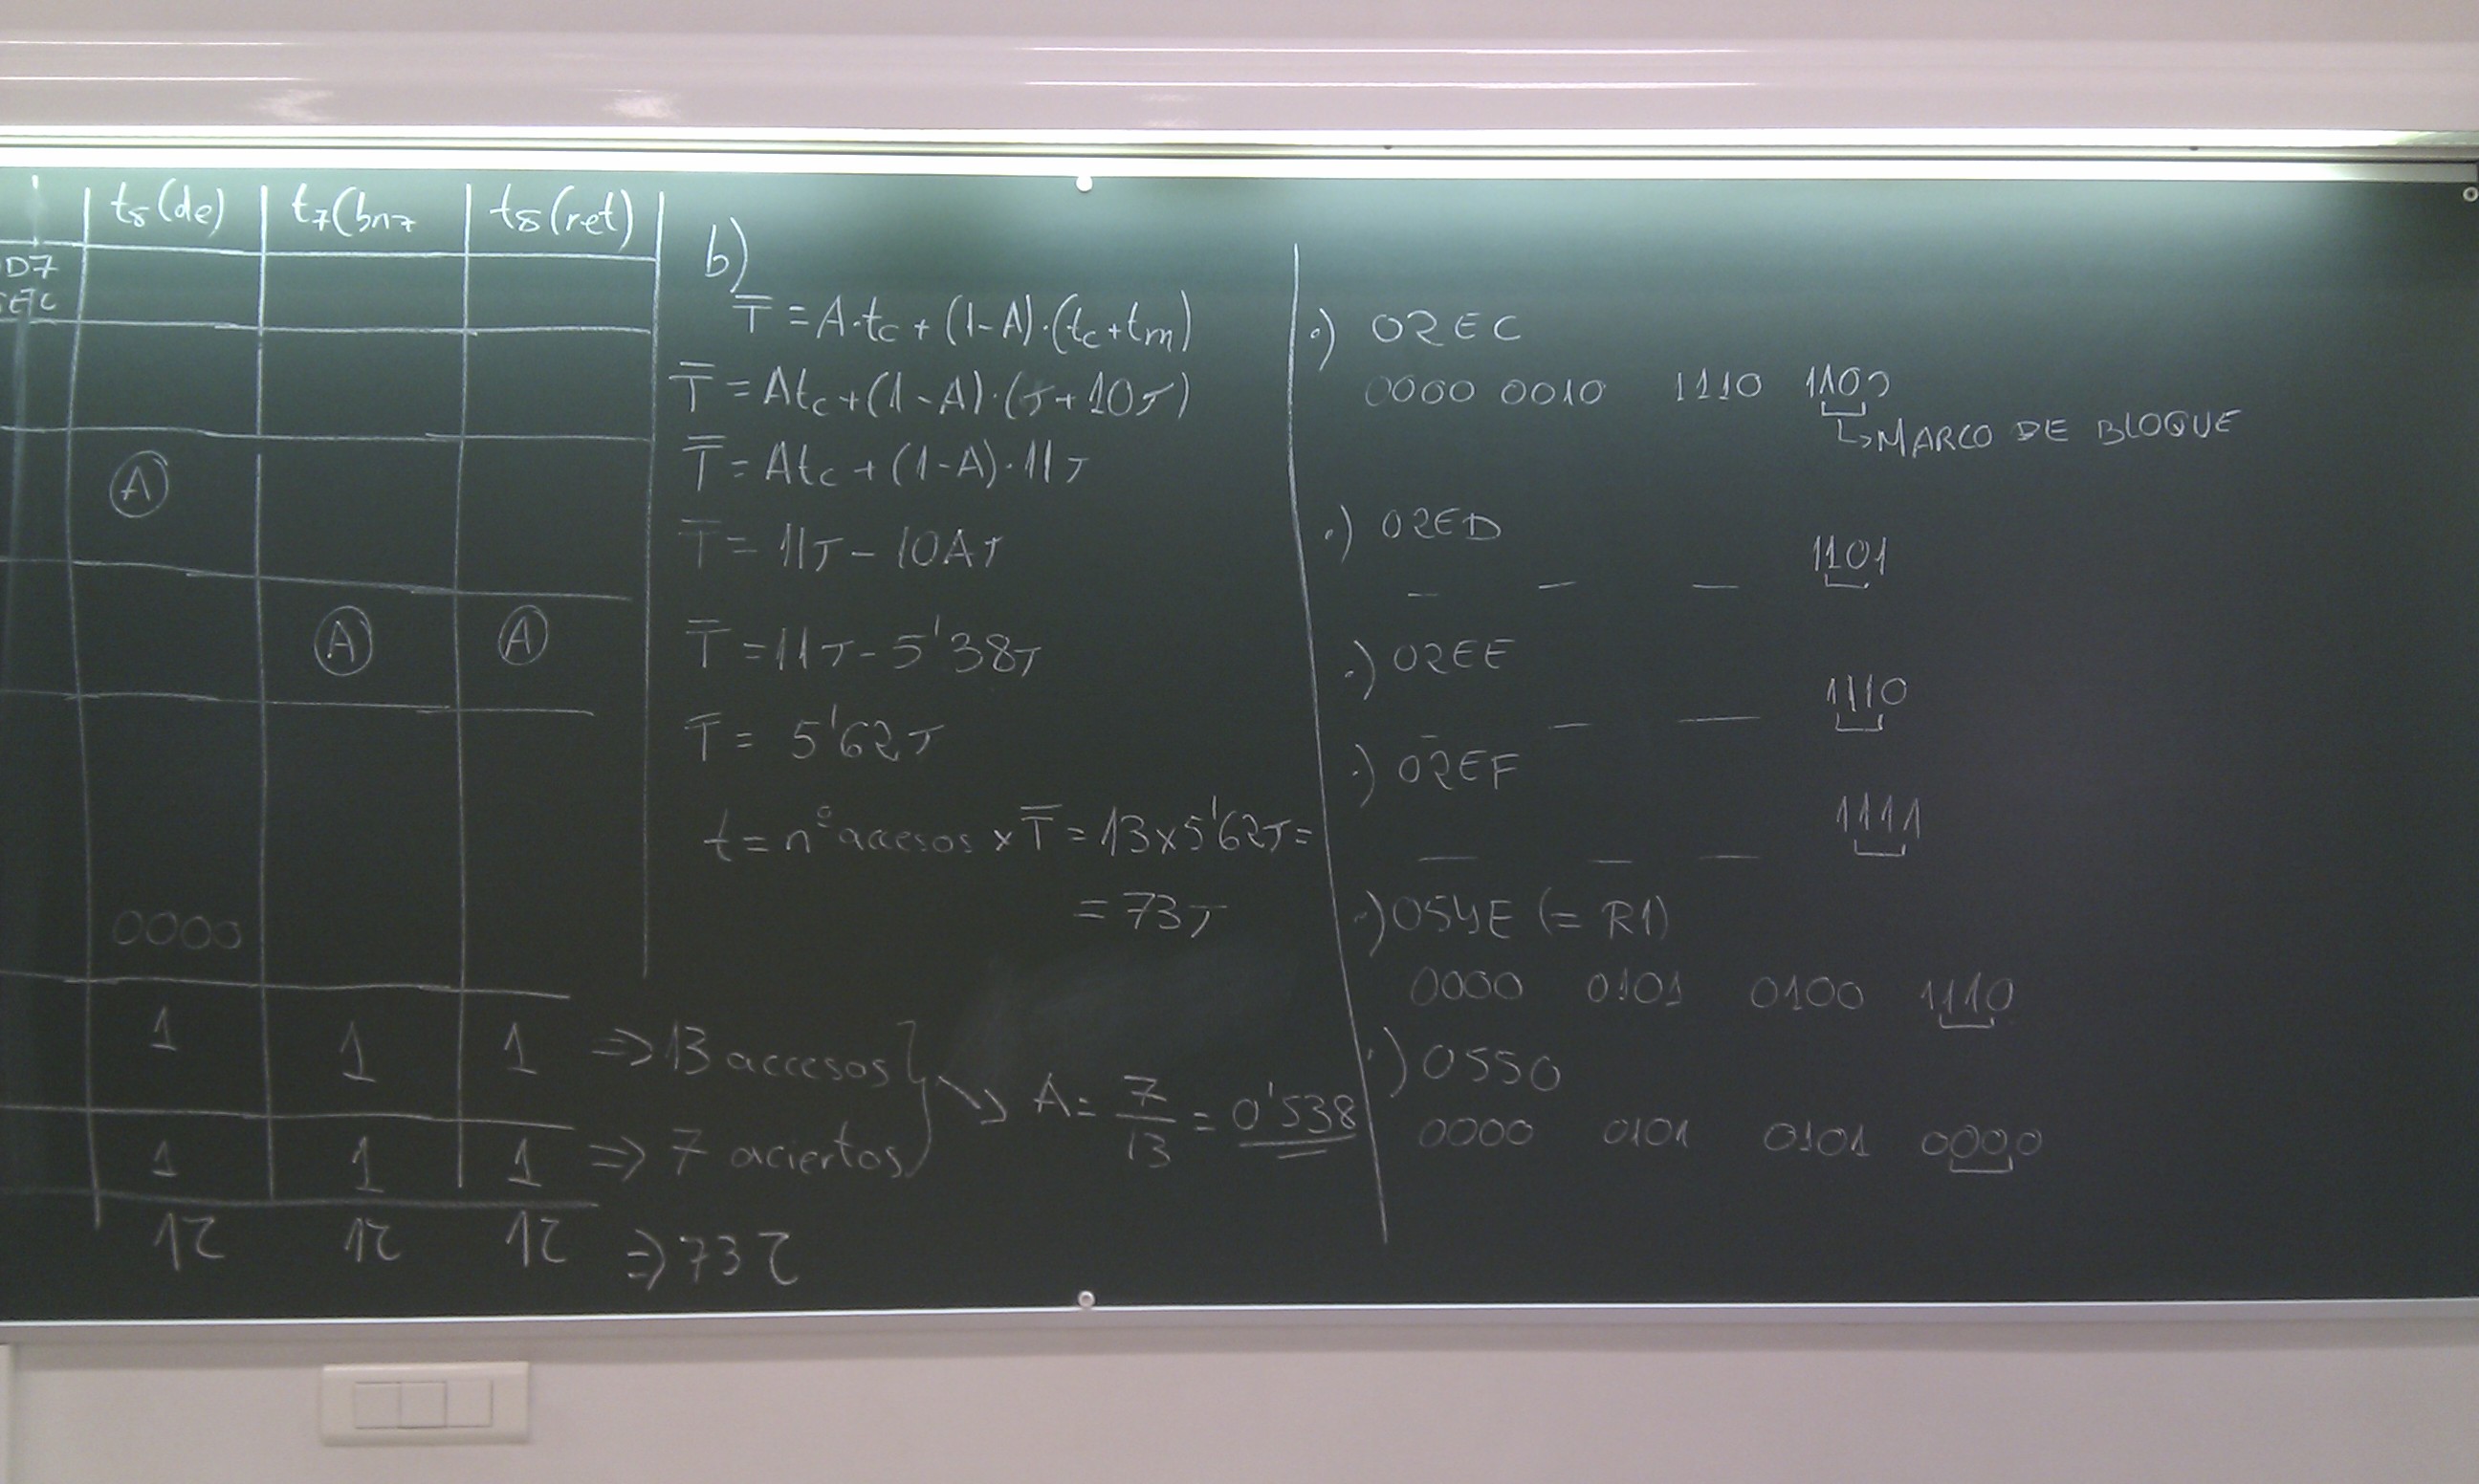 t₈(de) t₇(bnz t₈(ret)
D7
A
A A
0000
1 1 1 => 13 accesos
1 1 1 => 7 aciertos
1τ 1τ 1τ => 73τ
A = 7/13 = 0'538
b)
T̅ = A·tc + (1-A)·(tc+tm)
T̅ = Atc + (1-A)·(τ+10τ)
T̅ = Atc + (1-A)·11τ
T̅ = 11τ - 10Aτ
T̅ = 11τ - 5'38τ
T̅ = 5'62τ
t = nº accesos x T̅ = 13x5'62τ =
= 73τ
·) 02EC
0000 0010 1110 1100
↳MARCO DE BLOQUE
·) 02ED
— — — 1101
·) 02EE
— — — 1110
·) 02EF
— — — 1111
·) 054E (= R1)
0000 0101 0100 1110
·) 0550
0000 0101 0101 0000